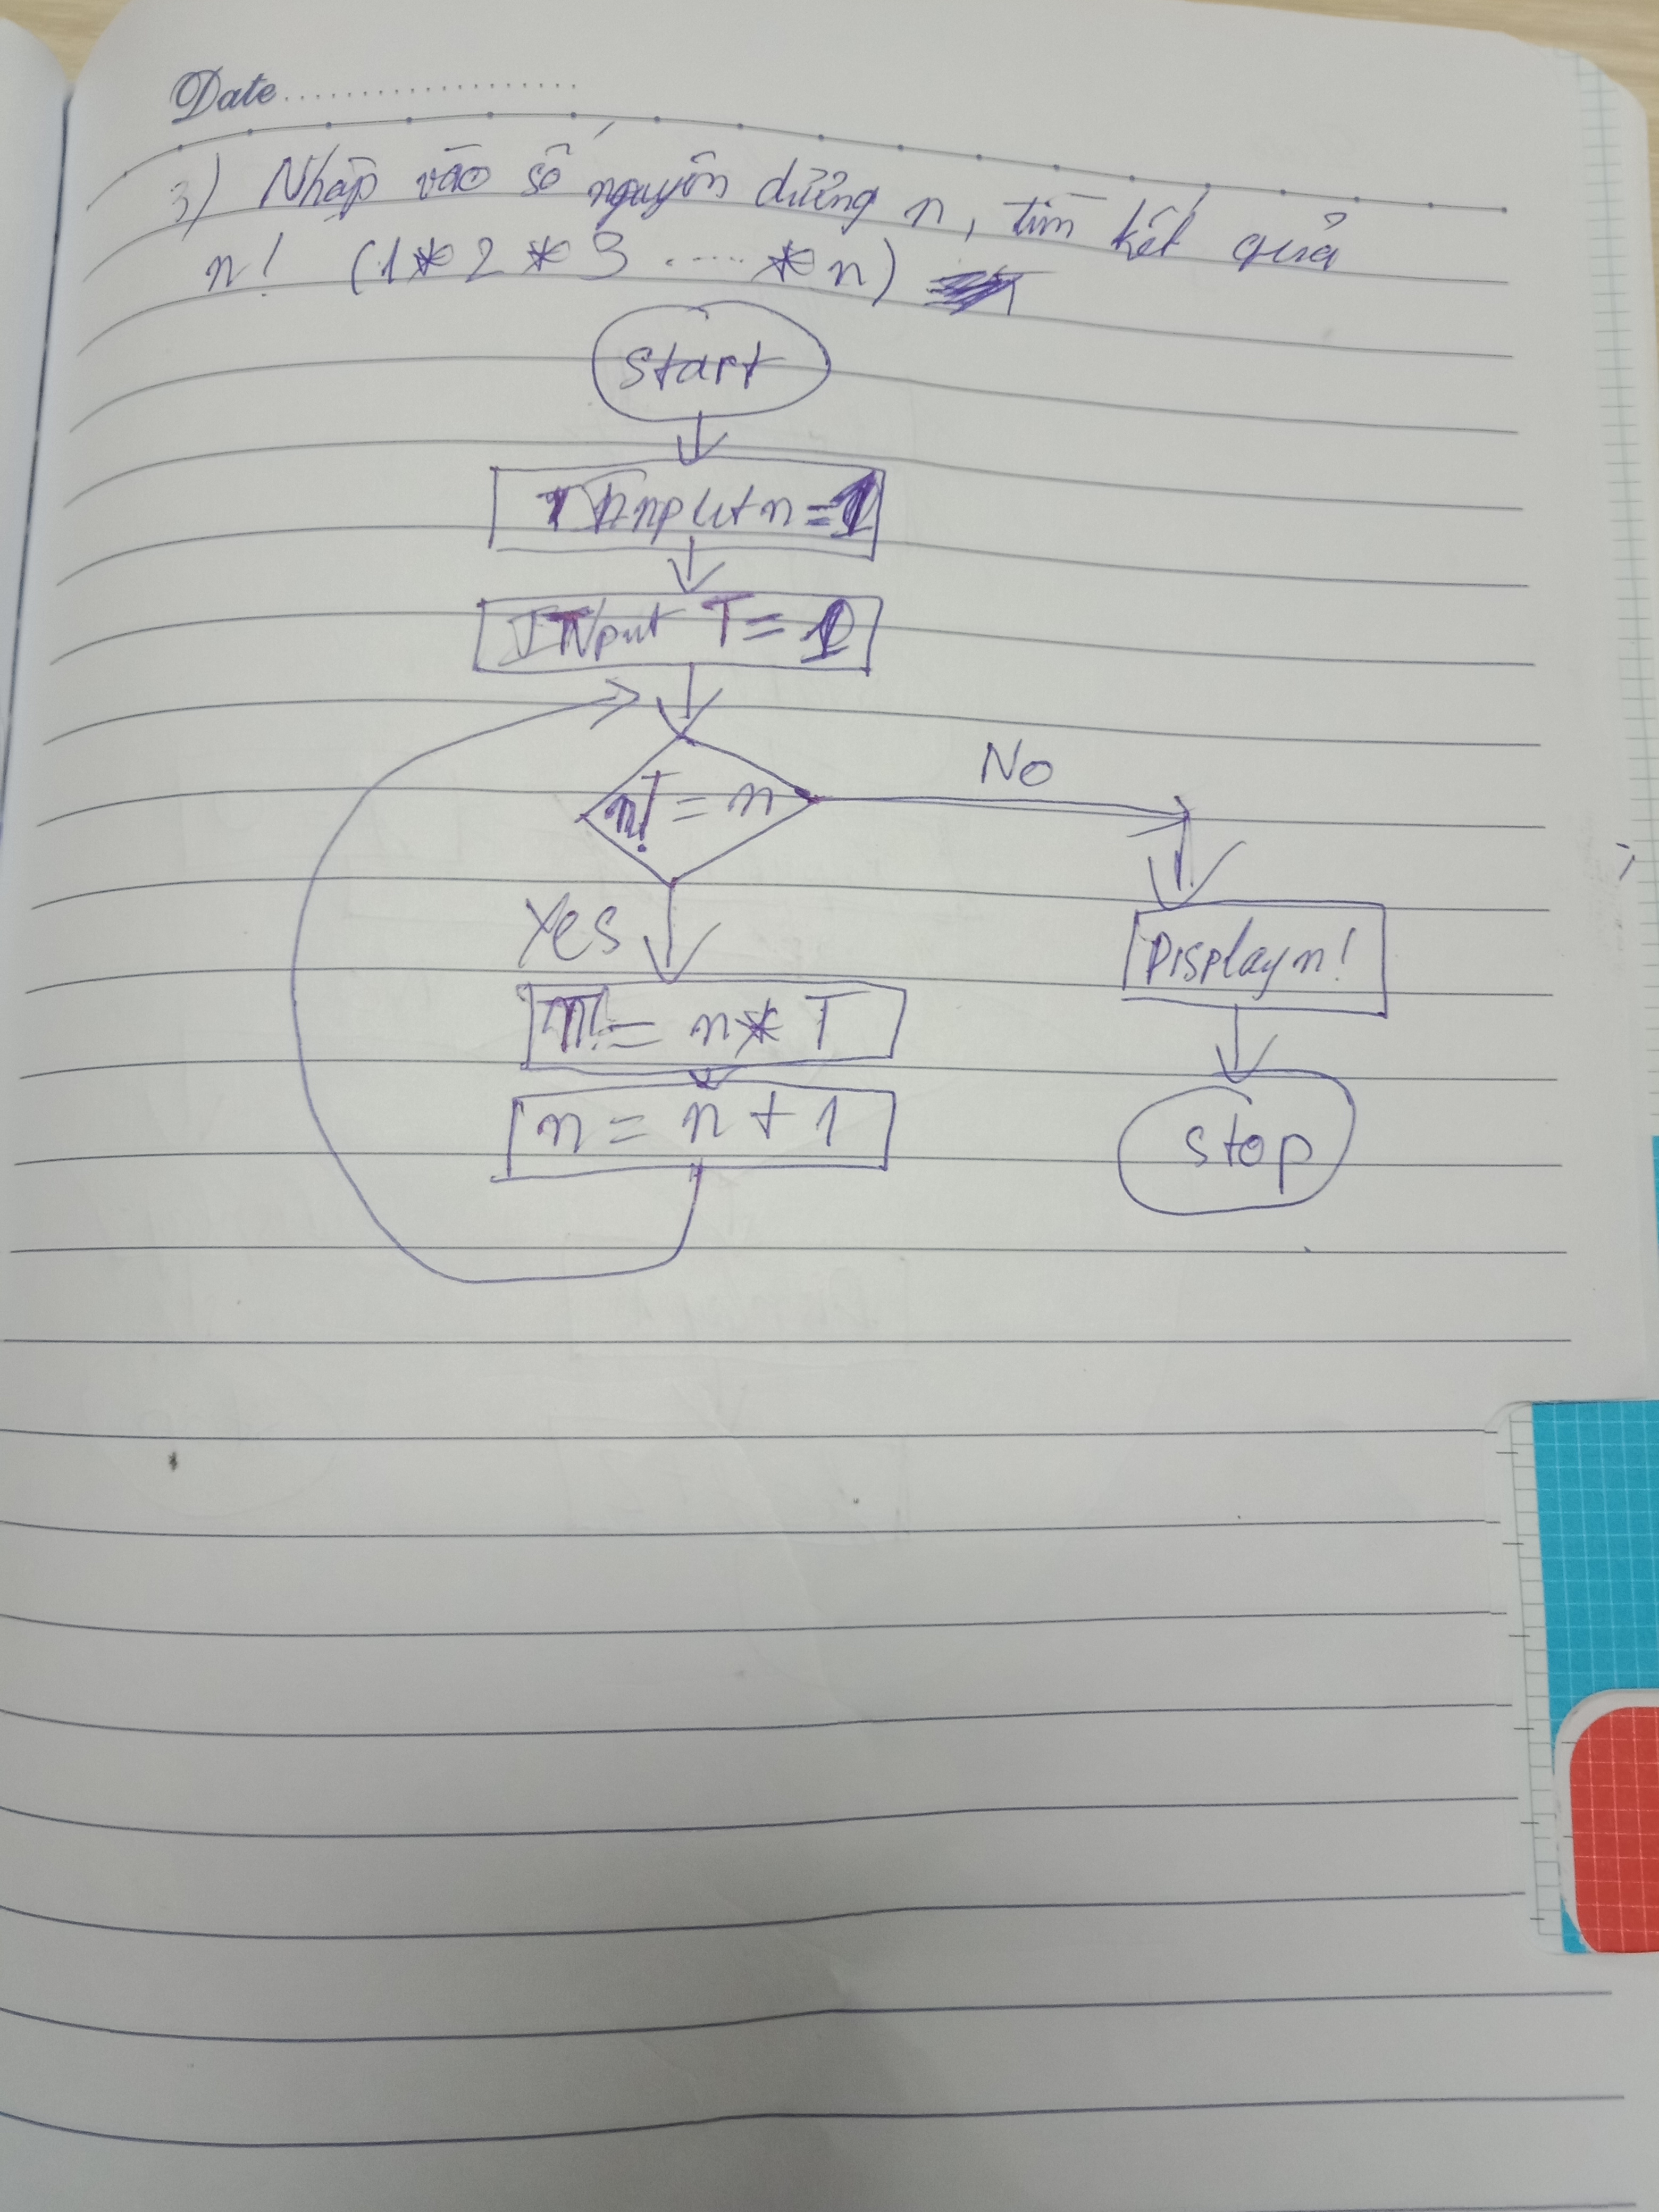 Date
3) Nhập vào số nguyên dương n, tìm kết quả
n! (1 * 2 * 3 ..... * n)
Start
Input n = 1
Input T = 1
= n
No
Yes
Display n!
= n * T
n = n + 1
Stop